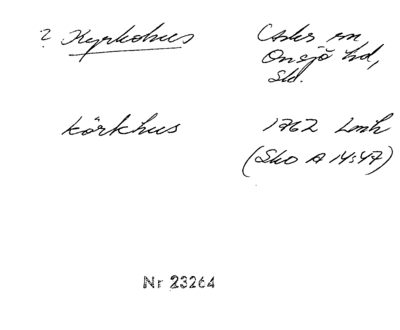 ? Kyrkohus Asks sn
Onsjö hd,
Skå.
körkhus 1762 Lmh
(Sko A 14:47)
Nr 23264